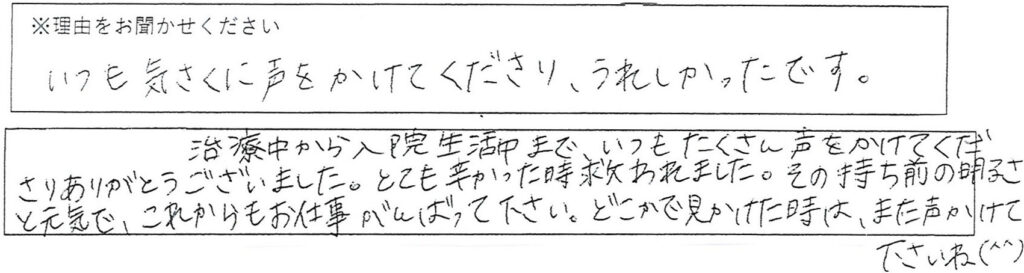 ※理由をお聞かせください
いつも気さくに声をかけてくださり、うれしかったです。
治療中から入院生活中まで、いつもたくさん声をかけてくだ
さりありがとうございました。とても辛かった時救われました。その持ち前の明るさ
と元気で、これからもお仕事がんばって下さい。どこかで見かけた時は、また声かけて
下さいね(^^)